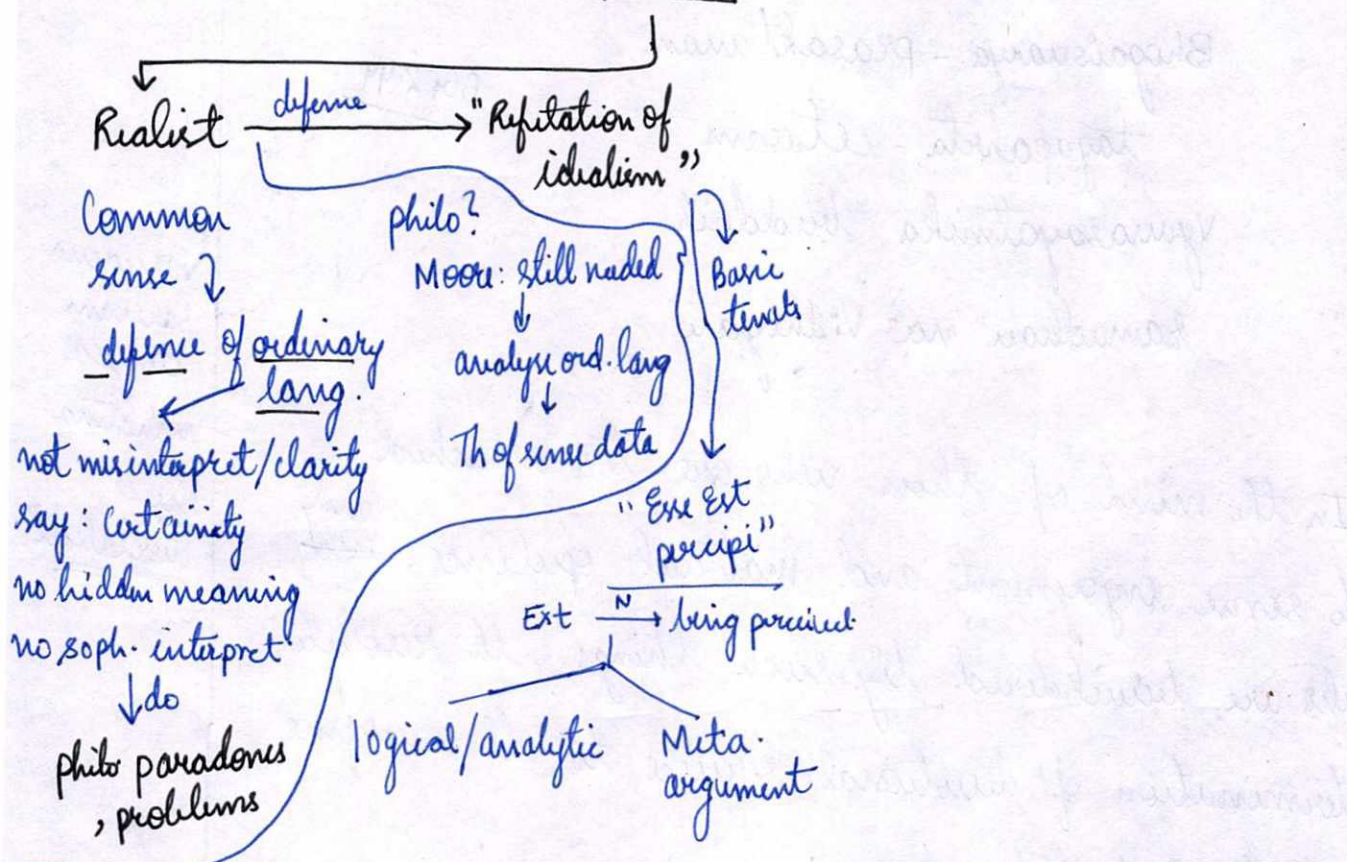 Realist
defense
"Refutation of
idealism"
Common
sense
defence of ordinary
lang.
not misinterpret/clarity
say: Certainity
no hidden meaning
no soph. interpret
do
philo paradoxes
, problems
philo?
Moore: still needed
analyse ord. lang
Th of sense data
Basic
tenets
"Esse Est
percipi"
Ext N being perceived.
logical/analytic
Meta.
argument